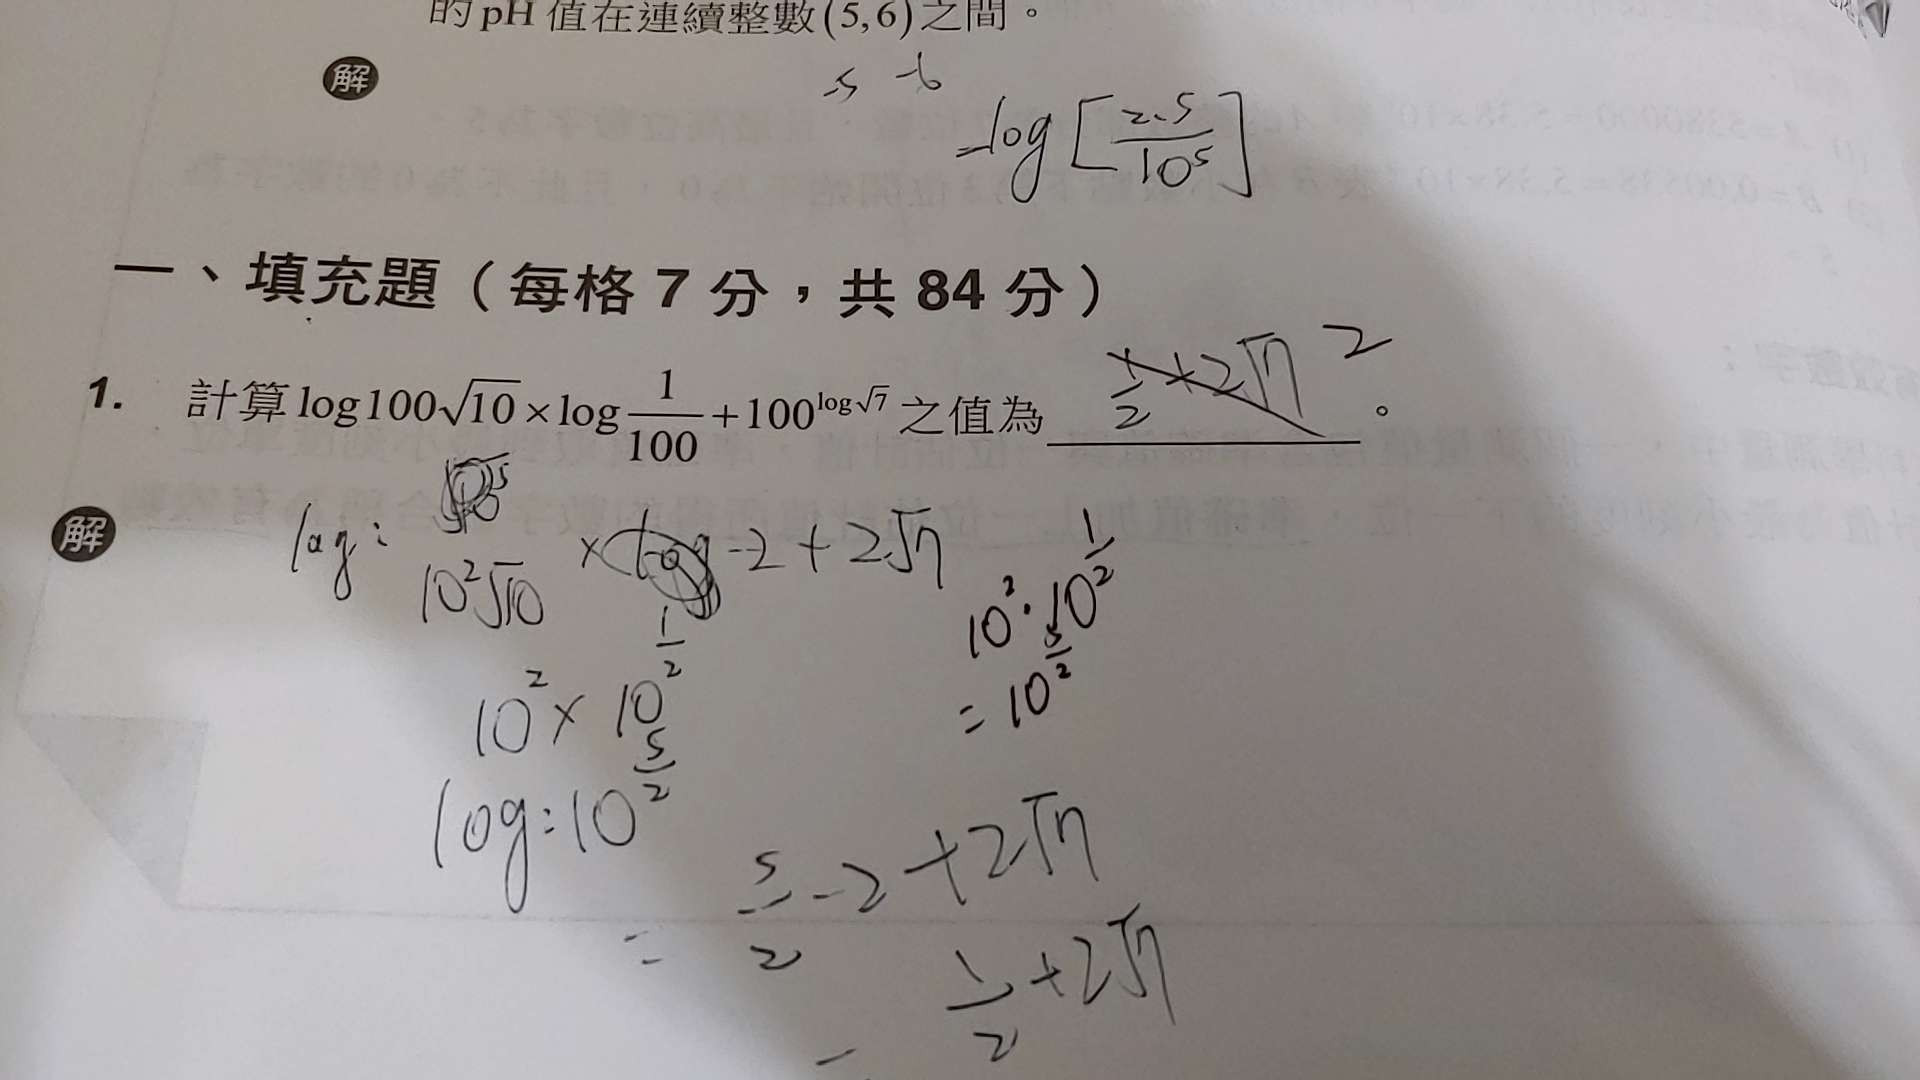 的 pH 值在連續整數 (5,6) 之間。
解
-5 -6
=log[2.5/10⁵]
一、填充題（每格 7 分，共 84 分）
1. 計算 log100√10 × log 1/100 + 100^(log√7) 之值為 1/2+2√7 2 。
解
log: 10²√10 × log -2 + 2√7
10² × 10^(1/2)
10²·10^(1/2)
= 10^(5/2)
log: 10^(5/2)
= 5/2 -2 +2√7
= 1/2 +2√7